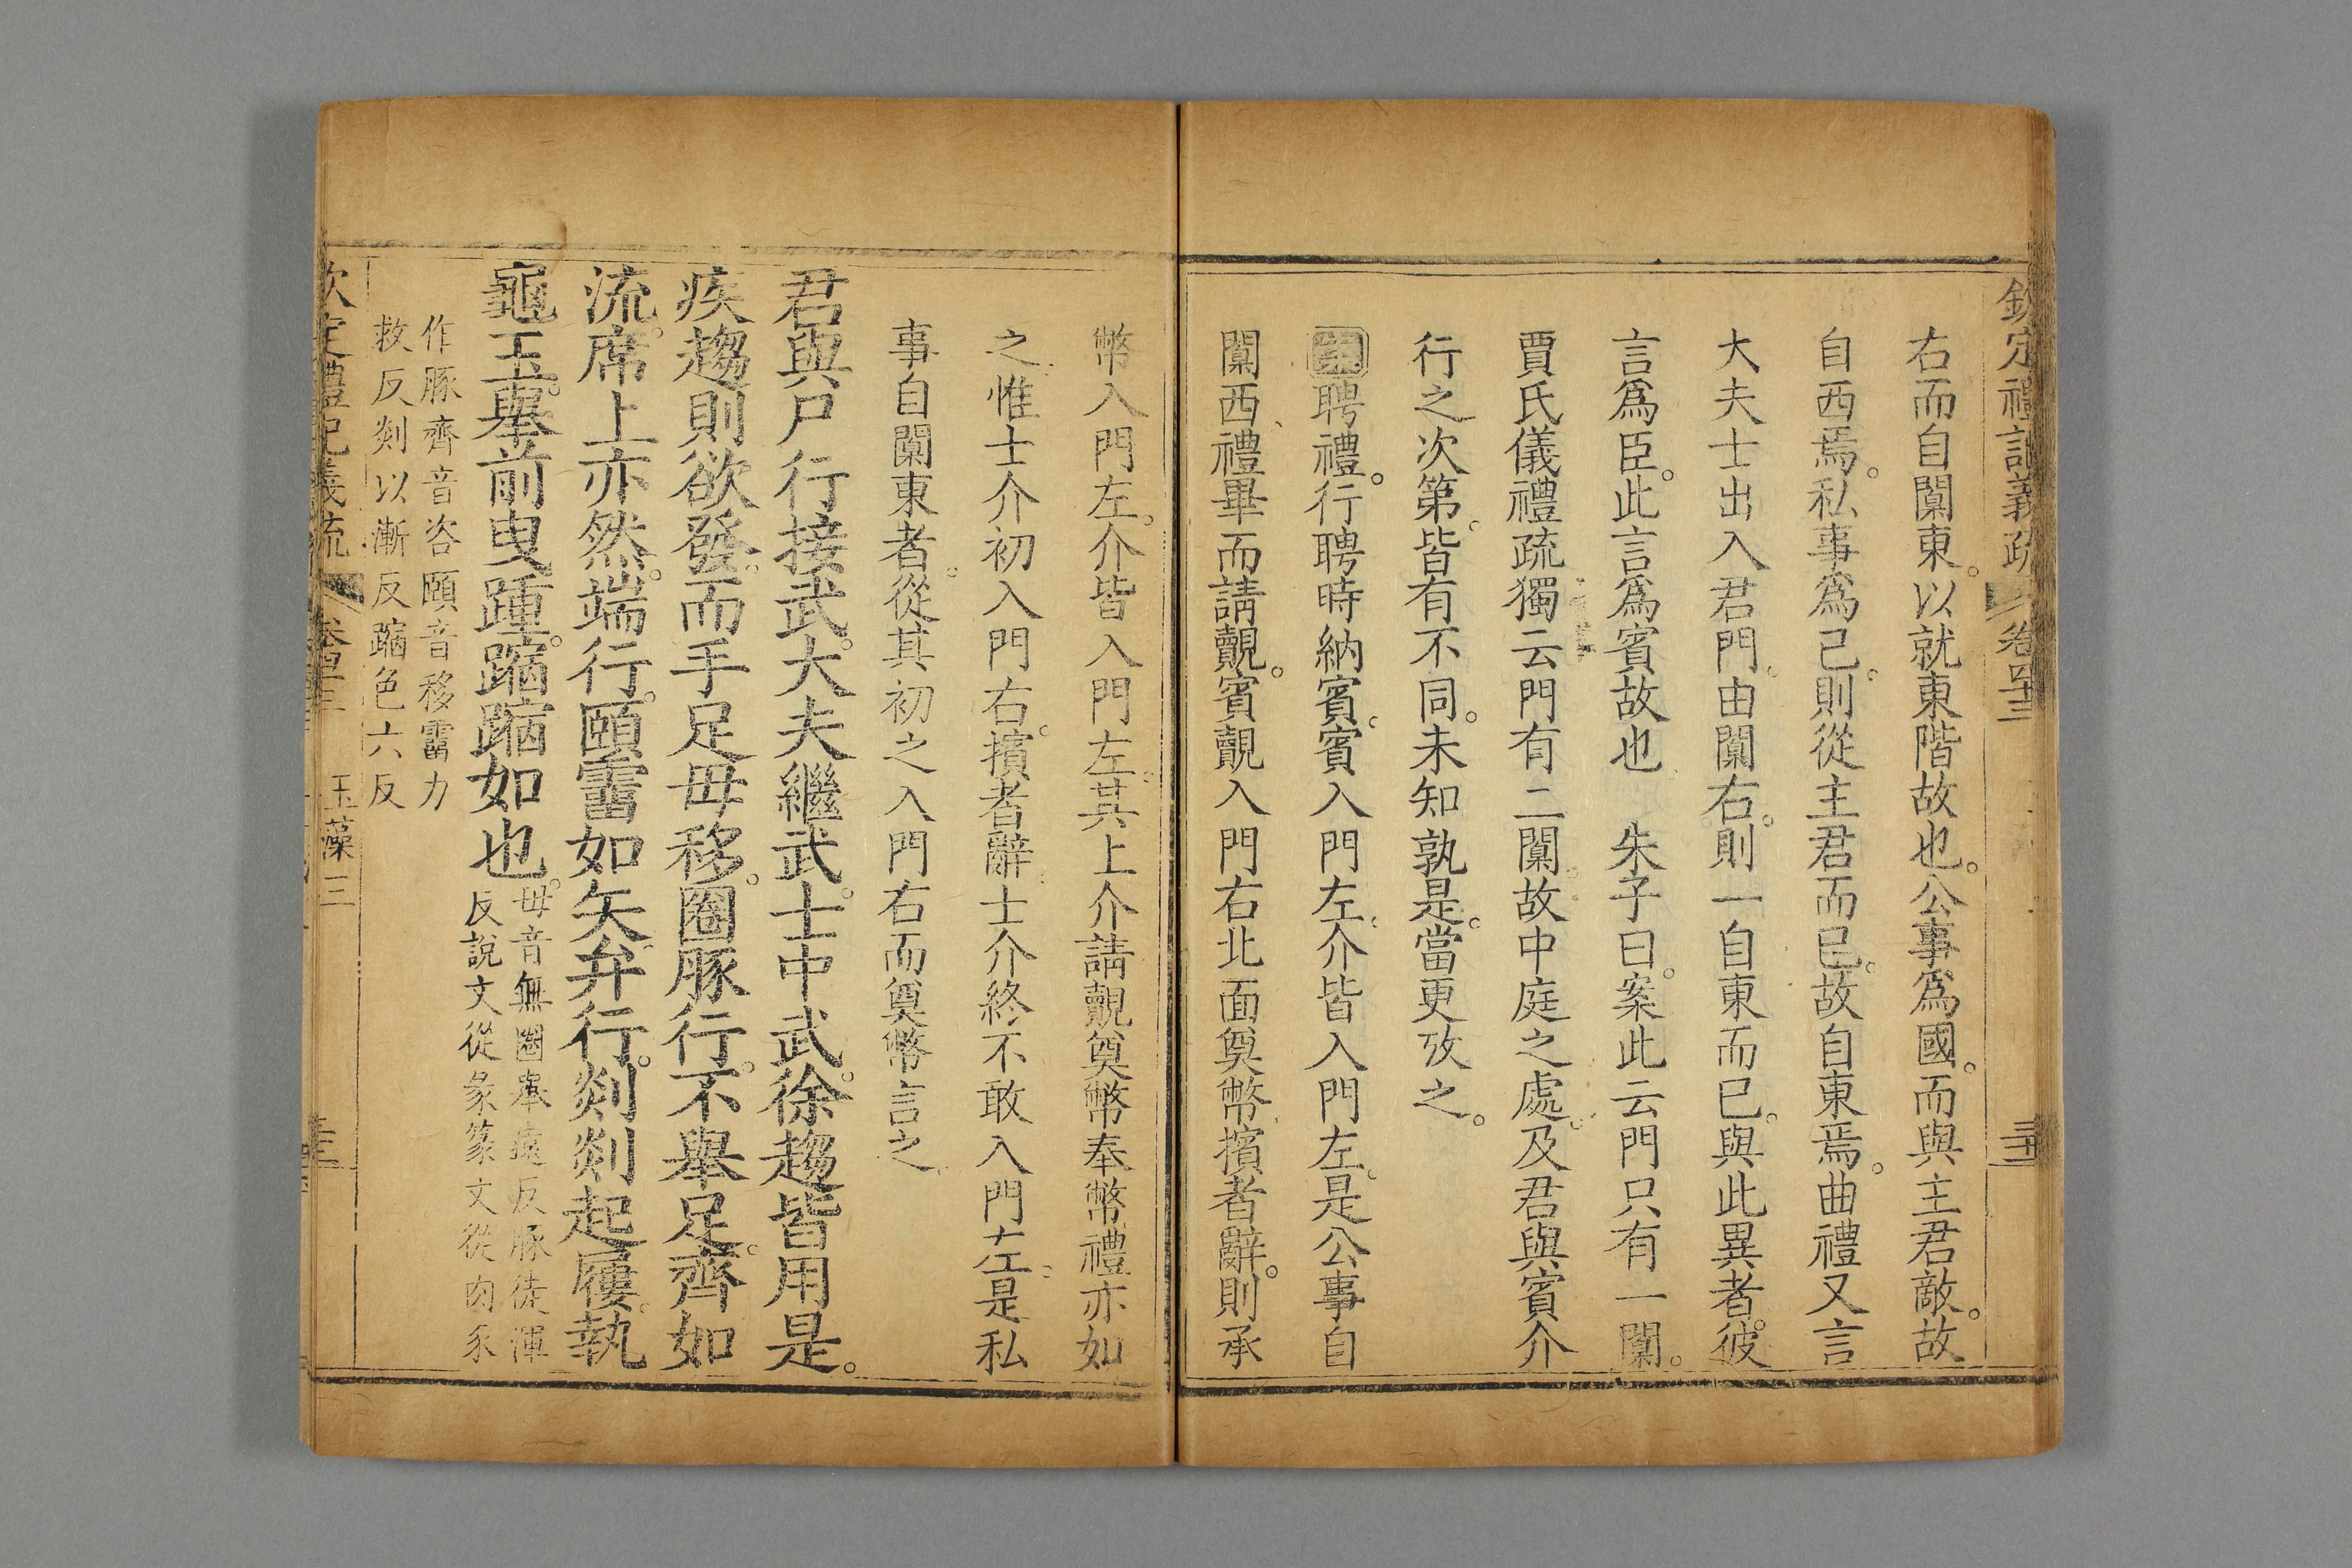 欽定禮記義疏 卷四十三
右而自闑東以就東階故也。公事爲國。而與主君敵。故
自西焉。私事爲己。則從主君而已。故自東焉。曲禮又言
大夫士出入君門。由闑右。則一自東而已。與此異者。彼
言爲臣。此言爲賓故也 朱子曰。案此云門只有一闑。
賈氏儀禮疏獨云門有二闑。故中庭之處。及君與賓介
行之次第。皆有不同。未知孰是。當更攷之。
案聘禮。行聘時納賓。賓入門左。介皆入門左。是公事自
闑西、禮畢而請覿。賓覿入門右北面奠幣、擯者辭。則承
幣入門左。介皆入門左。其上介請覿奠幣奉幣禮亦如
之、惟士介初入門右。擯者辭、士介終不敢入門左。是私
事自闑東者。從其初之入門右而奠幣言之、
君與尸行接武。大夫繼武。士中武。徐趨皆用是。
疾趨則欲發。而手足毋移。圈豚行。不舉足。齊如
流。席上亦然。端行。頤霤如矢。弁行。剡剡起屨。執
龜玉。舉前曳踵。蹜蹜如也。毋音無圈舉遠反豚徒渾
反說文從彖篆文從肉豕
作豚齊音咨頤音移霤力
救反剡以漸反蹜色六反
欽定禮記義疏 卷四十三 玉藻三